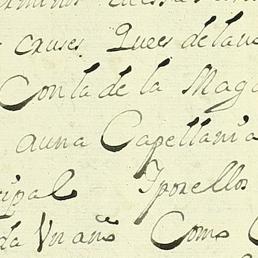 cruses, Quees dela
Con la de la Mag
auna Capellania
cipal Yporellos
da Vn año Como C